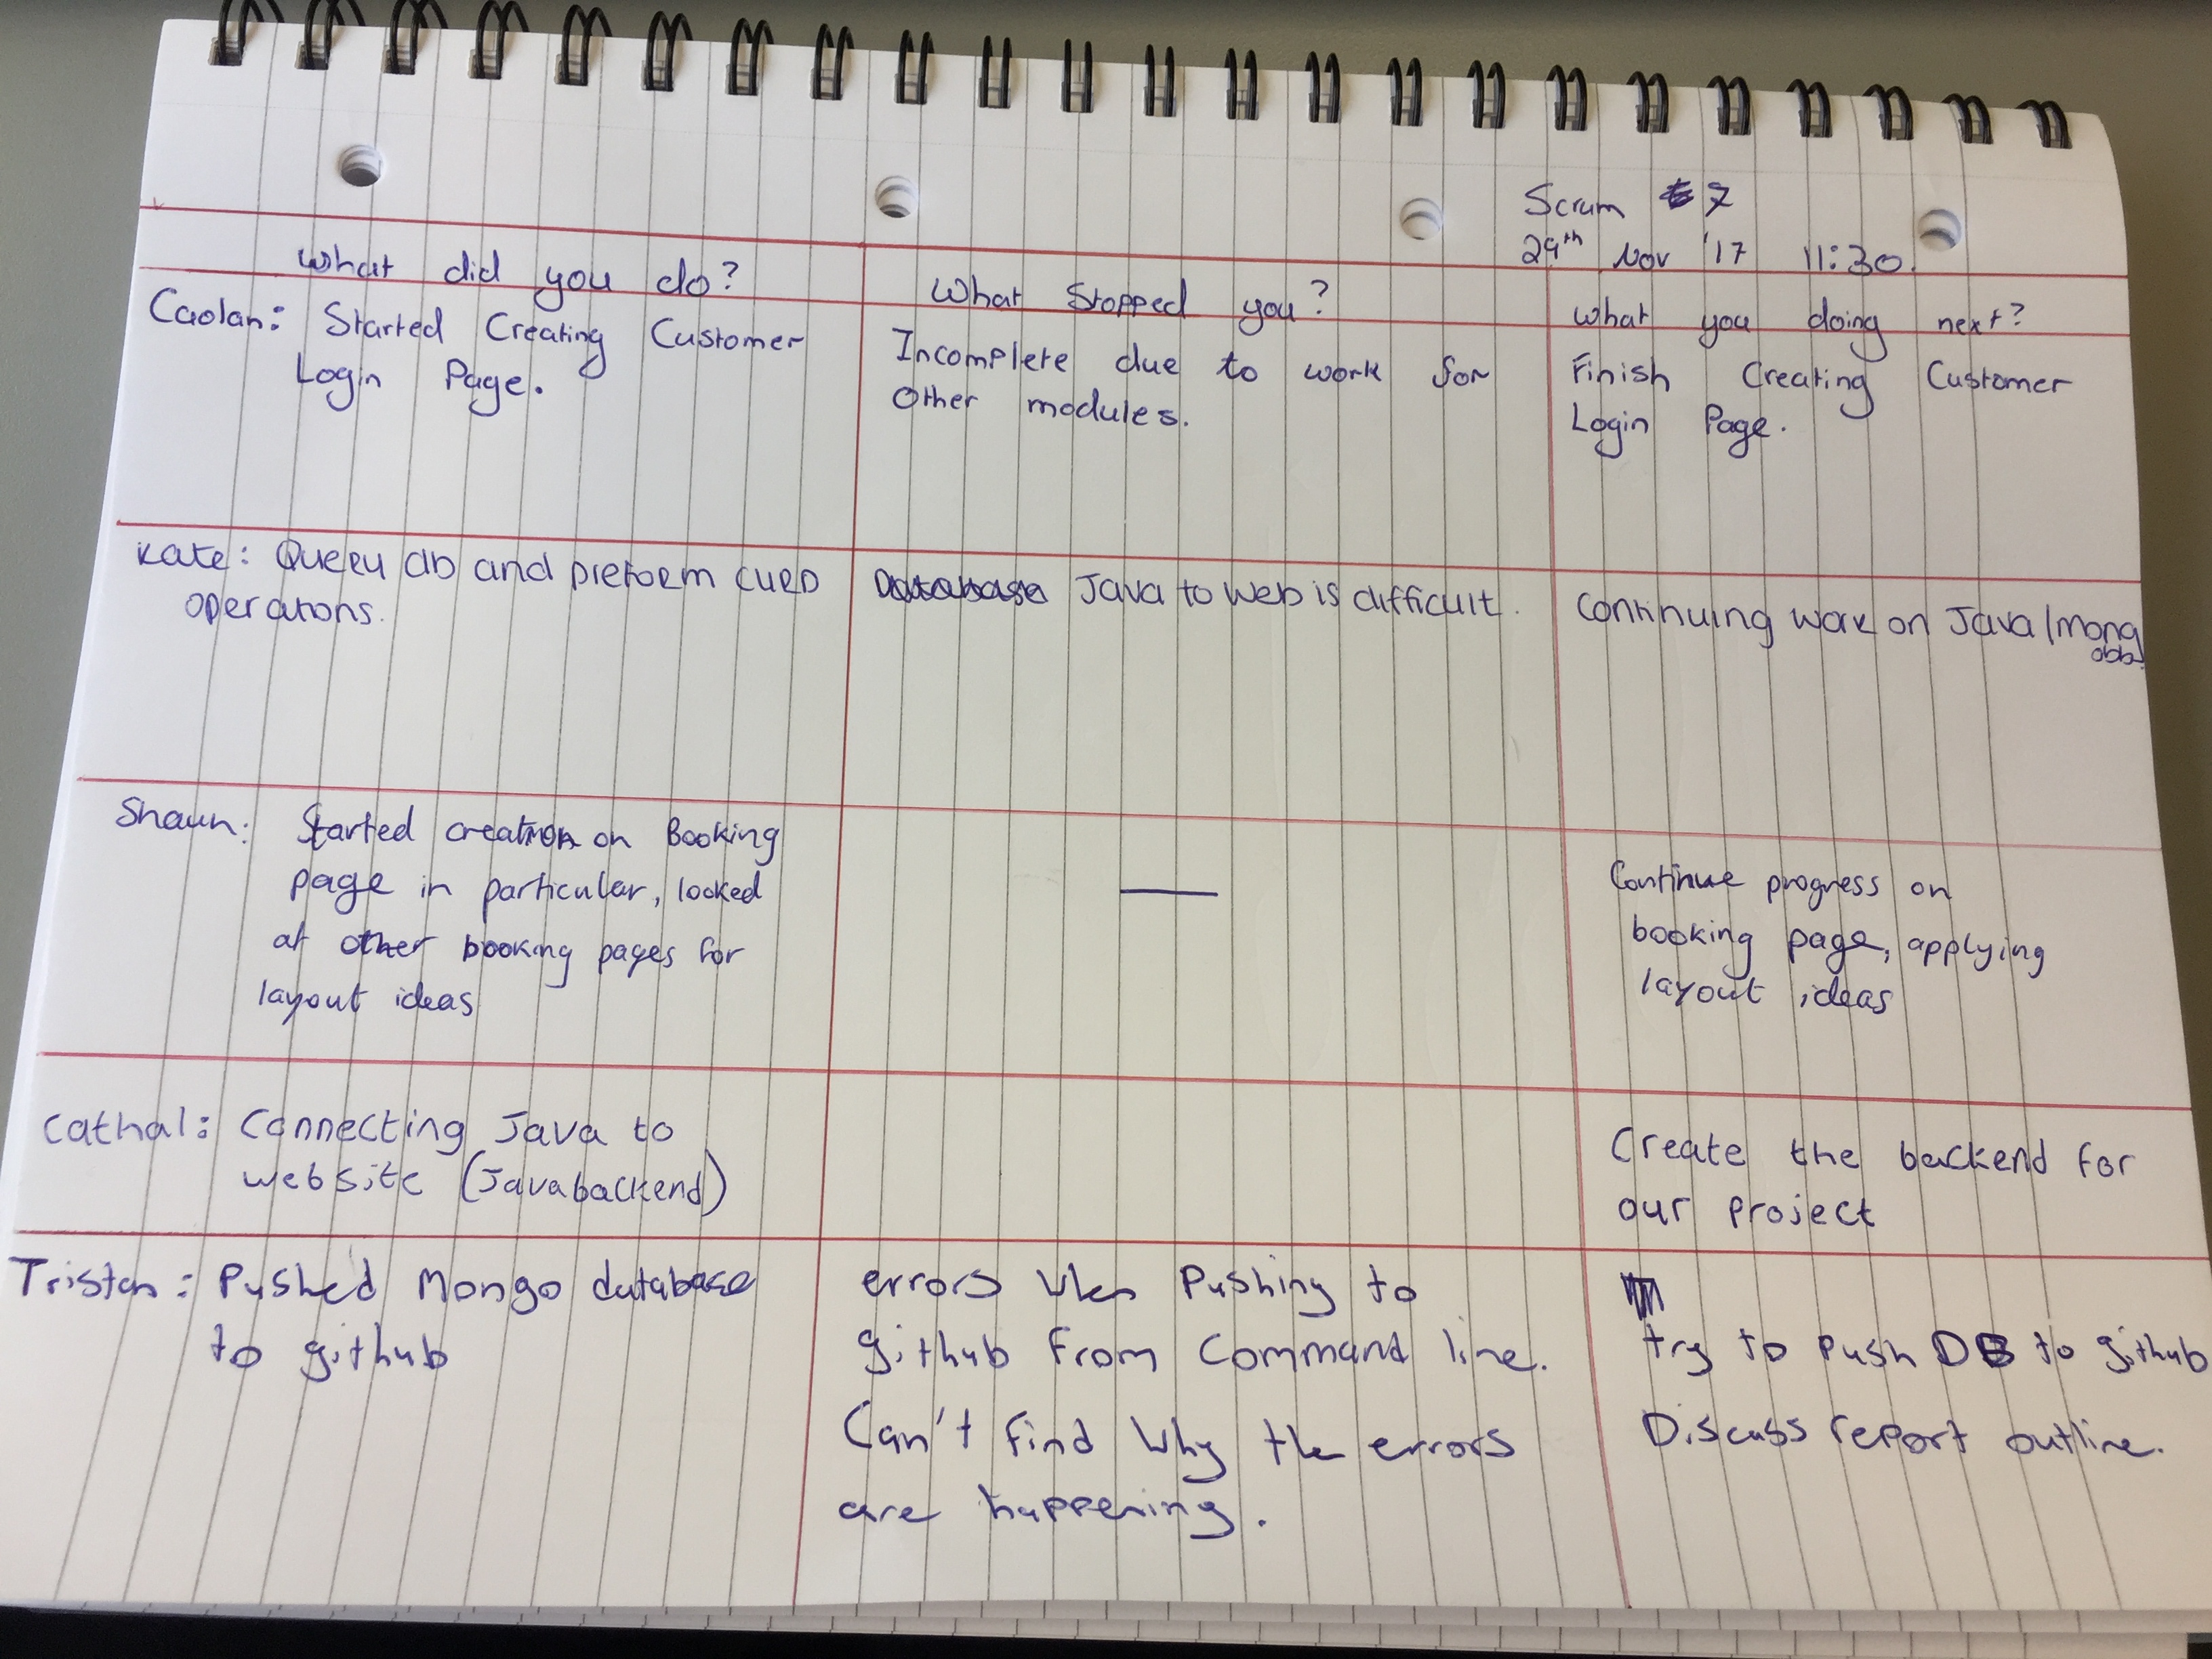 Scrum #7
29th Nov '17 11:30.
What did you do?
What Stopped you?
What you doing next?
Caolan: Started Creating Customer
Login Page.
Incomplete due to work for
other modules.
Finish Creating Customer
Login Page.
Kate: Query db and preform CURD
operations.
Java to web is difficult.
Continuing work on Java/mongo
Shaun: Started creation on booking
page in particular, looked
at other booking pages for
layout ideas
—
Continue progress on
booking page, applying
layout ideas
Cathal: Connecting Java to
website (Javabackend)
Create the backend for
our project
Tristan: Pushed Mongo database
to github
errors when pushing to
github from command line.
Can't find why the errors
are happening.
try to push DB to github
Discuss report outline.